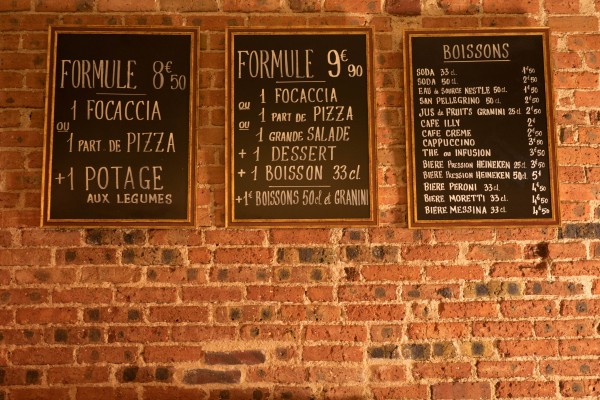 FORMULE 8€50
1 FOCACCIA
OU
1 PART. DE PIZZA
+ 1 POTAGE
AUX LEGUMES
FORMULE 9€90
1 FOCACCIA
OU
1 PART DE PIZZA
OU
1 GRANDE SALADE
+ 1 DESSERT
+ 1 BOISSON 33 cl
+1€ BOISSONS 50 cl & GRANINI
BOISSONS
SODA 33 cl.
SODA 50 cl.
EAU de SOURCE NESTLE 50 cl.
SAN PELLEGRINO 50 cl.
JUS de FRUITS GRANINI 25 cl 2€50
CAFE ILLY 2€
CAFE CREME
CAPPUCCINO
THE ou INFUSION
BIERE PRESSION HEINEKEN 25 cl 3€50
BIERE PRESSION HEINEKEN 50 cl. 5€
BIERE PERONI 33 cl 4€50
BIERE MORETTI 33 cl 4€50
BIERE MESSINA 33 cl 4€50